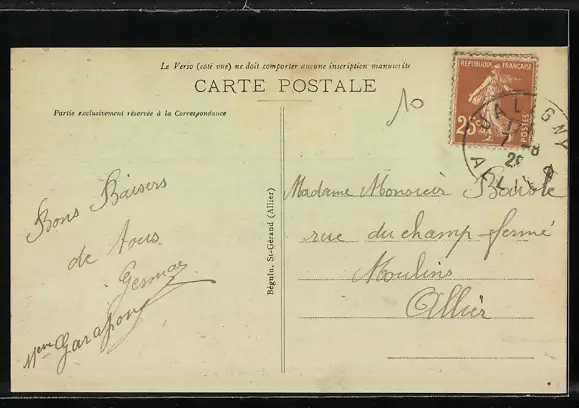 Le Verso (côté vue) ne doit comporter aucune inscription manuscrite
CARTE POSTALE
Partie exclusivement réservée à la Correspondance
10
REPUBLIQUE FRANÇAISE
25c
POSTES
VALIGNY
ALLIER
Bons Baisers
de tous
Germaine
Mme Garapon
Béguin, St-Gérand (Allier)
Madame Monsieur
rue du champ fermé
Moulins
Allier